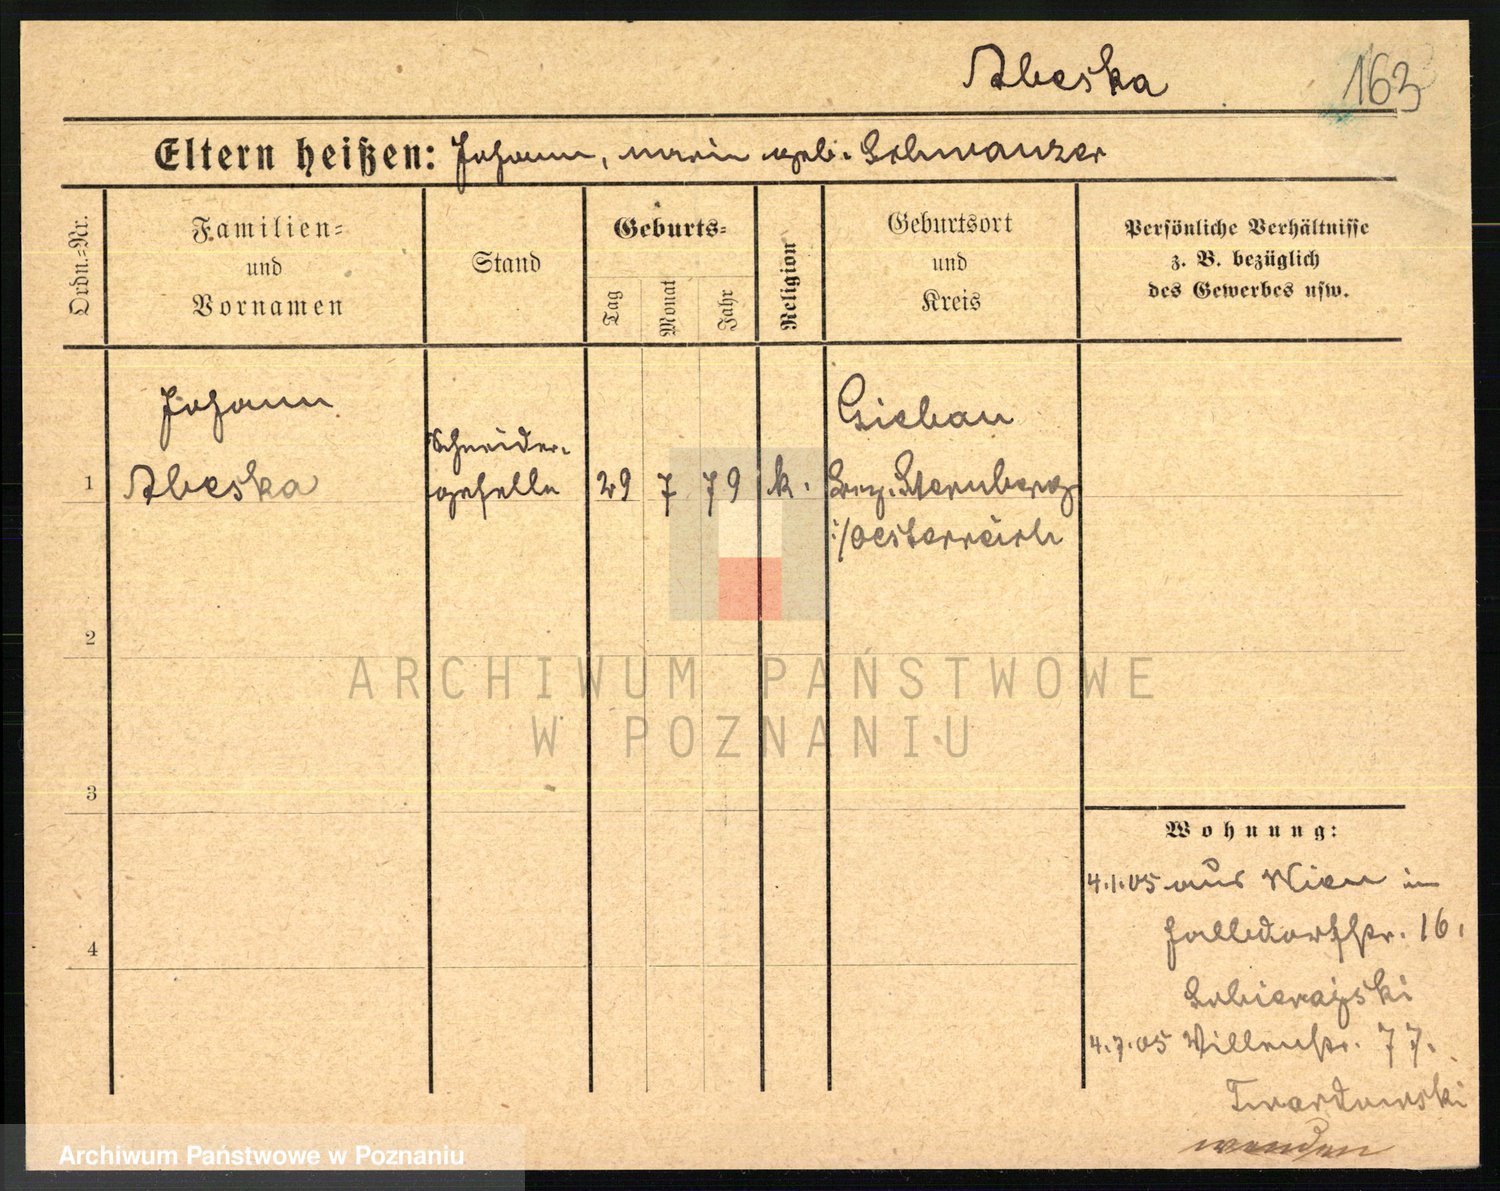 Abeska 163
Eltern heißen: Johann, Marie geb. Schwanzer
Ordn.-Nr.
Familien-
und
Vornamen
Stand
Geburts-
Tag
Monat
Jahr
Religion
Geburtsort
und
Kreis
Persönliche Verhältnisse
z. B. bezüglich
des Gewerbes usw.
Johann
Abeska
Schneider-
geselle
1
29 7 79 k.
Giebau
Bez. Sternberg
i/Oesterreich
2
3
4
Wohnung:
4.1.05 aus Wien in
16.
4.7.05 77.
Twardowski
wenden
ARCHIWUM PAŃSTWOWE
W POZNANIU
Archiwum Państwowe w Poznaniu